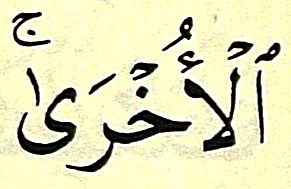 ٱلْأُخْرَىٰۚ